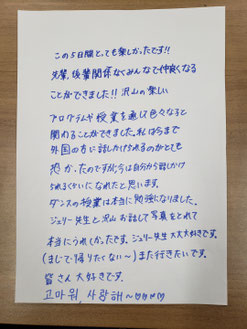 この5日間とっても楽しかったです!!
先輩、後輩関係なくみんなで仲良くなる
ことができました!! 沢山の楽しい
プログラムや授業を通して色々な人と
関わることができました。私は今まで
外国の方に話しかけられるのがとても
恐かったのですが、今は自分から話しかけ
られるくらいになれたと思います。
ダンスの授業は本当に勉強になりました。
ジェリー先生と沢山お話して写真をとれて
本当にうれしかったです。ジェリー先生大大大好きです。
(まじで帰りたくない〜) また行きたいです。
皆さん大好きです。
고마워, 사랑해~♡♡♡♡